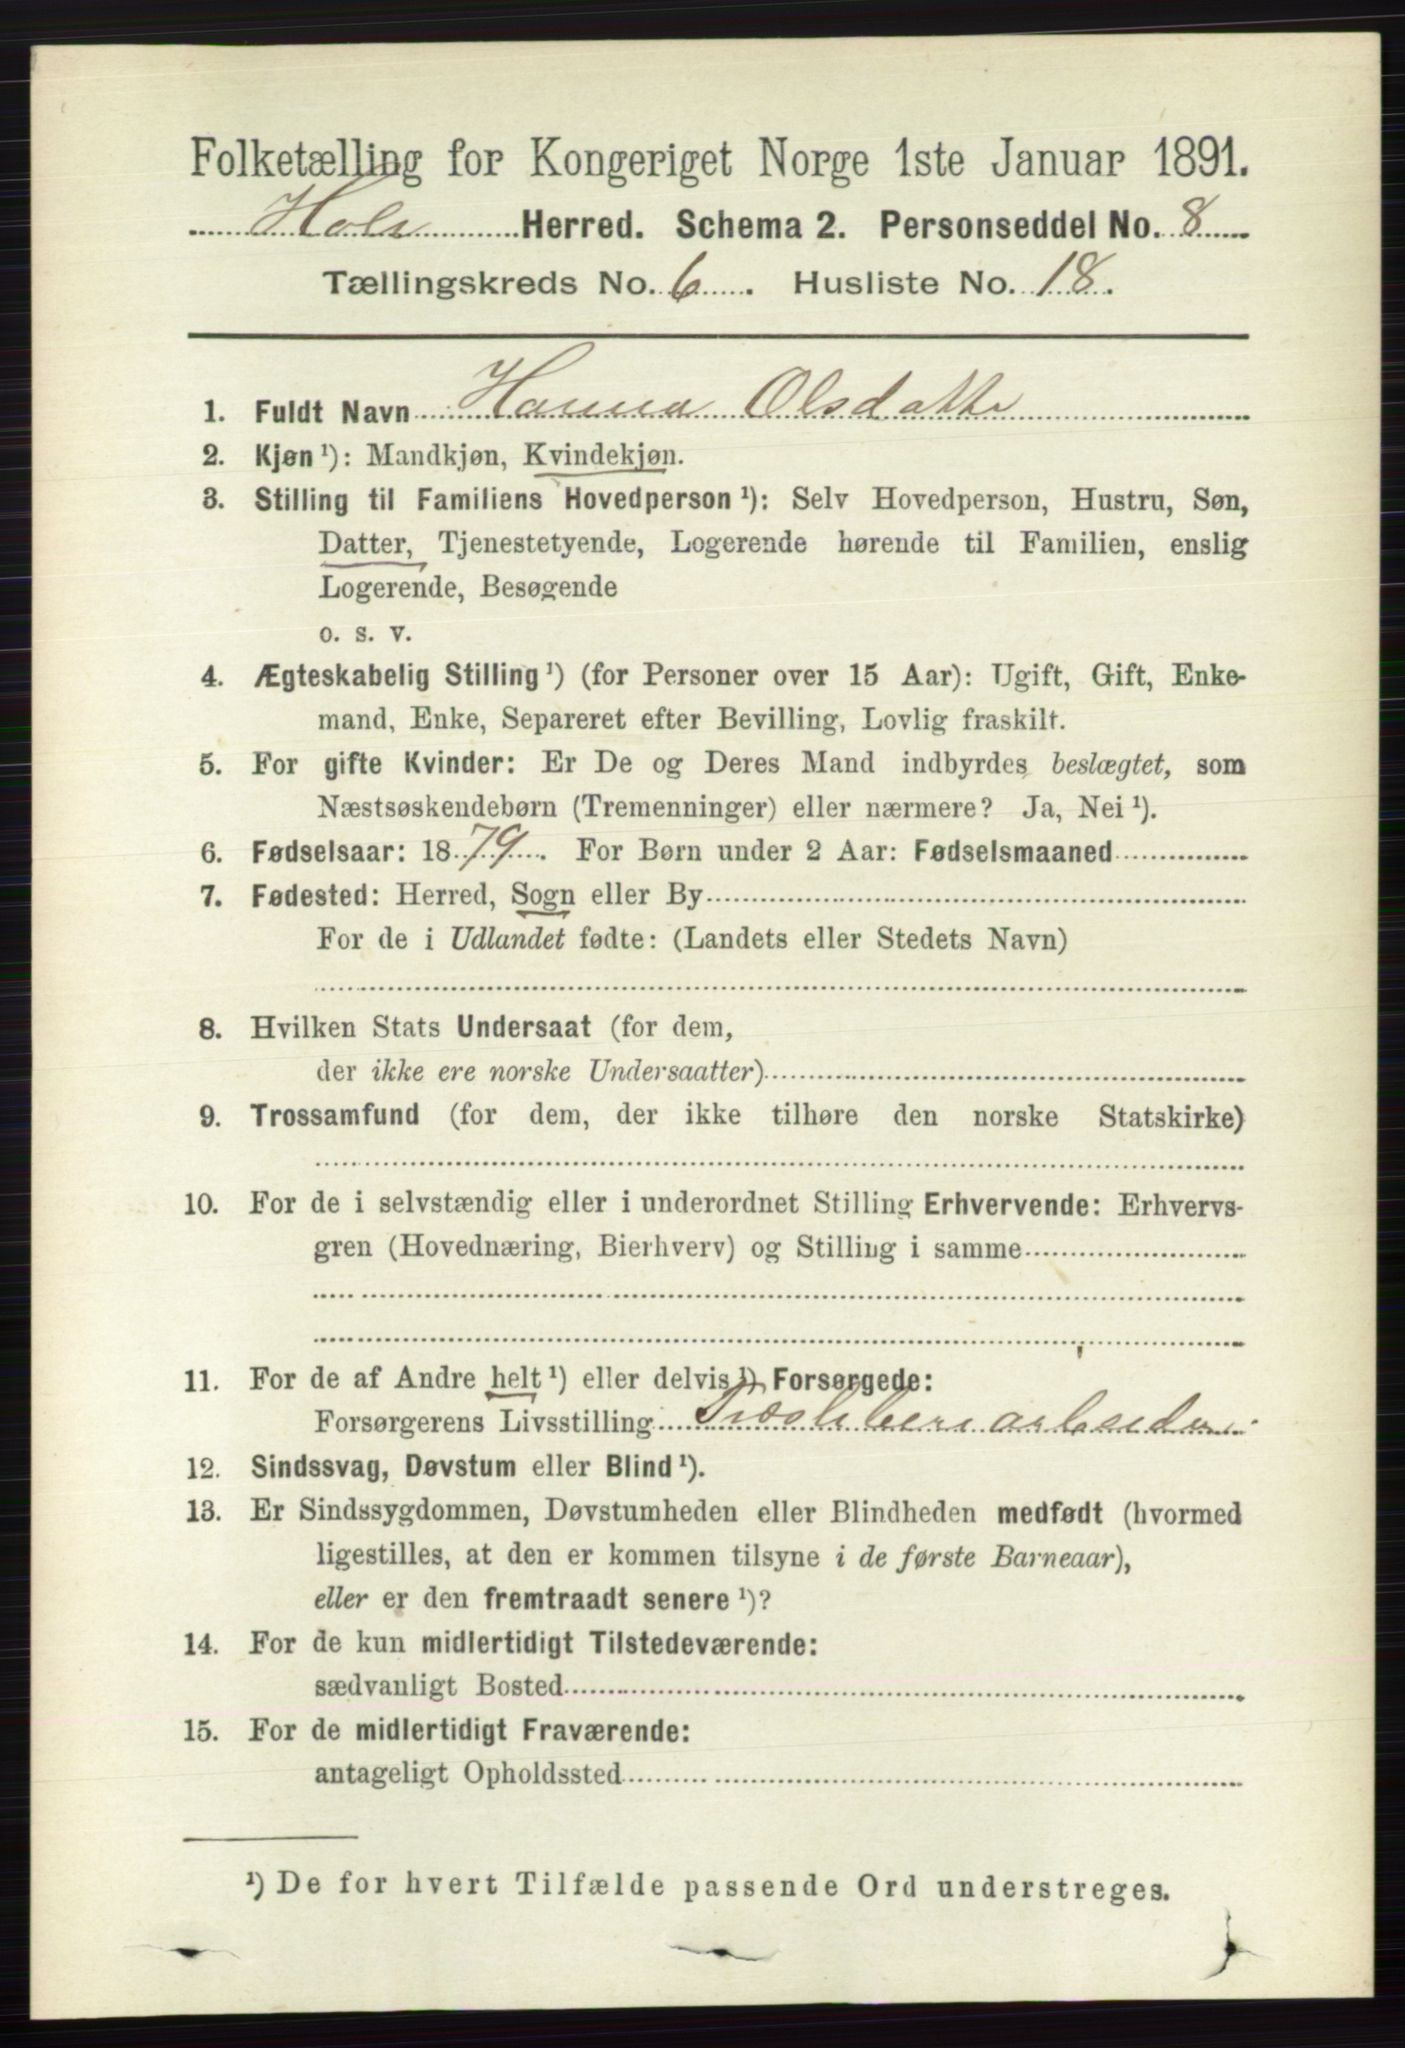 Folketælling for Kongeriget Norge 1ste Januar 1891.
Hole Herred. Schema 2. Personseddel No. 8
Tællingskreds No. 6. Husliste No. 18.
1. Fuldt Navn Hanna Olsdatter
2. Kjøn ¹): Mandkjøn, Kvindekjøn.
3. Stilling til Familiens Hovedperson ¹): Selv Hovedperson, Hustru, Søn,
Datter, Tjenestetyende, Logerende hørende til Familien, enslig
Logerende, Besøgende
o. s. v.
4. Ægteskabelig Stilling ¹) (for Personer over 15 Aar): Ugift, Gift, Enke-
mand, Enke, Separeret efter Bevilling, Lovlig fraskilt.
5. For gifte Kvinder: Er De og Deres Mand indbyrdes beslægtet, som
Næstsøskendebørn (Tremenninger) eller nærmere? Ja, Nei ¹).
6. Fødselsaar: 1879. For Børn under 2 Aar: Fødselsmaaned
7. Fødested: Herred, Sogn eller By
For de i Udlandet fødte: (Landets eller Stedets Navn)
8. Hvilken Stats Undersaat (for dem,
der ikke ere norske Undersaatter)
9. Trossamfund (for dem, der ikke tilhøre den norske Statskirke)
10. For de i selvstændig eller i underordnet Stilling Erhvervende: Erhvervs-
gren (Hovednæring, Bierhverv) og Stilling i samme
11. For de af Andre helt ¹) eller delvis ¹) Forsørgede:
Forsørgerens Livsstilling
12. Sindssvag, Døvstum eller Blind ¹).
13. Er Sindssygdommen, Døvstumheden eller Blindheden medfødt (hvormed
ligestilles, at den er kommen tilsyne i de første Barneaar),
eller er den fremtraadt senere ¹)?
14. For de kun midlertidigt Tilstedeværende:
sædvanligt Bosted
15. For de midlertidigt Fraværende:
antageligt Opholdssted
¹) De for hvert Tilfælde passende Ord understreges.